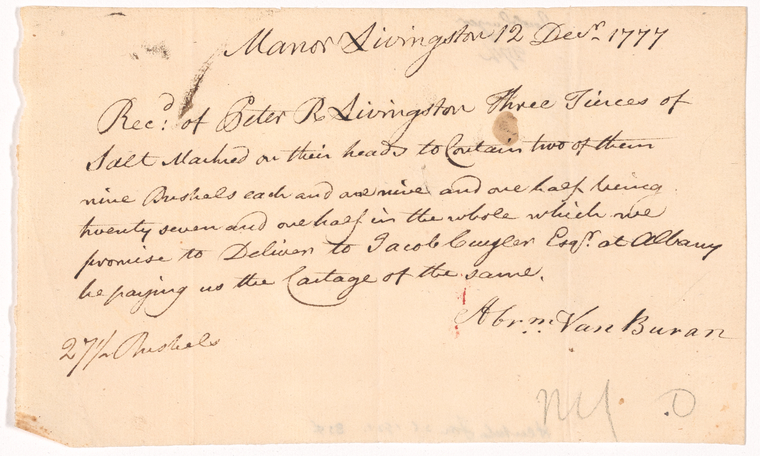 Manor Livingston 12 Decr. 1777
Recd: of Peter R Livingston Three Tierces of
Salt Marked on their heads to Contain two of them
nine Bushels each and one nine and one half being
twenty seven and one half in the whole which we
promise to Deliver to Jacob Cuyler Esqr. at Albany
he paying us the Cartage of the same.
Abrm. Van Buran
27½ Bushels
NY